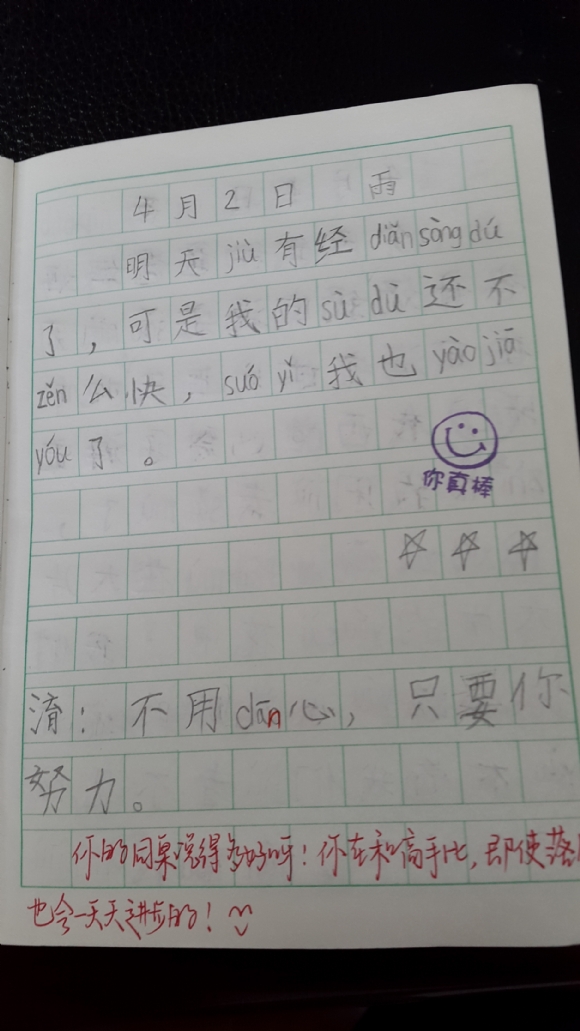 4月2日 雨
明天jiù有经diǎn sòng dú
了，可是我的sù dù还不
zěn么快，suó yǐ我也yào jiā
yóu了。
你真棒
淯：不用dān心，只要你
努力。
你的同桌说得多好呀！你在和高手比，即使落
也会一天天进步的！